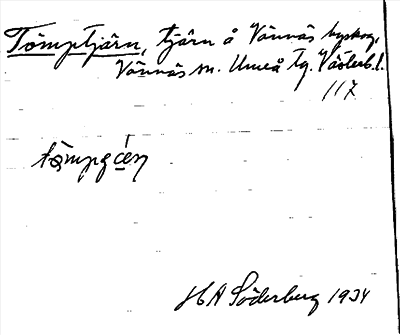 Tömptjärn, tjärn å Vännäs byskog,
Vännäs sn. Umeå tg. Västerb. l.
117
H A Söderberg 1934